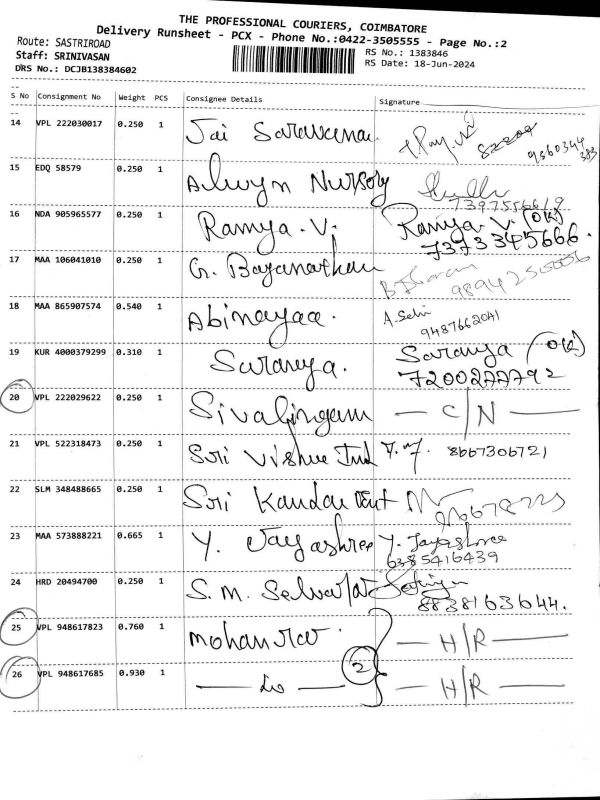 THE PROFESSIONAL COURIERS, COIMBATORE
Delivery Runsheet - PCX - Phone No.:0422-3505555 - Page No.:2
Route: SASTRIROAD
RS No.: 1383846
Staff: SRINIVASAN
RS Date: 18-Jun-2024
DRS No.: DCJB138384602
S No Consignment No Weight PCS Consignee Details Signature
14 VPL 222030017 0.250 1 Jai
15 EDQ 58579 0.250 1 Alwyn Nursory
16 NDA 905965577 0.250 1 Ramya . V. Ramya V. (OK)
7373345666.
17 MAA 106041010 0.250 1 G.
18 MAA 865907574 0.540 1 Abinayaa. A. Selvi
9487662041
19 KUR 4000379299 0.310 1 Saranya. Saranya (OK)
7200277792
20 VPL 222029622 0.250 1 Sivalingam — C/N —
21 VPL 522318473 0.250 1 Sri Vishnu Ind 8667306721
22 SLM 348488665 0.250 1 Sri Kandan Dent
23 MAA 573888221 0.665 1 Y. Jayashree Y. Jayashree
6385416439
24 HRD 20494700 0.250 1 S. M.
8838163644.
25 VPL 948617823 0.760 1 Mohanrav. — H/R —
26 VPL 948617685 0.930 1 2 — H/R —